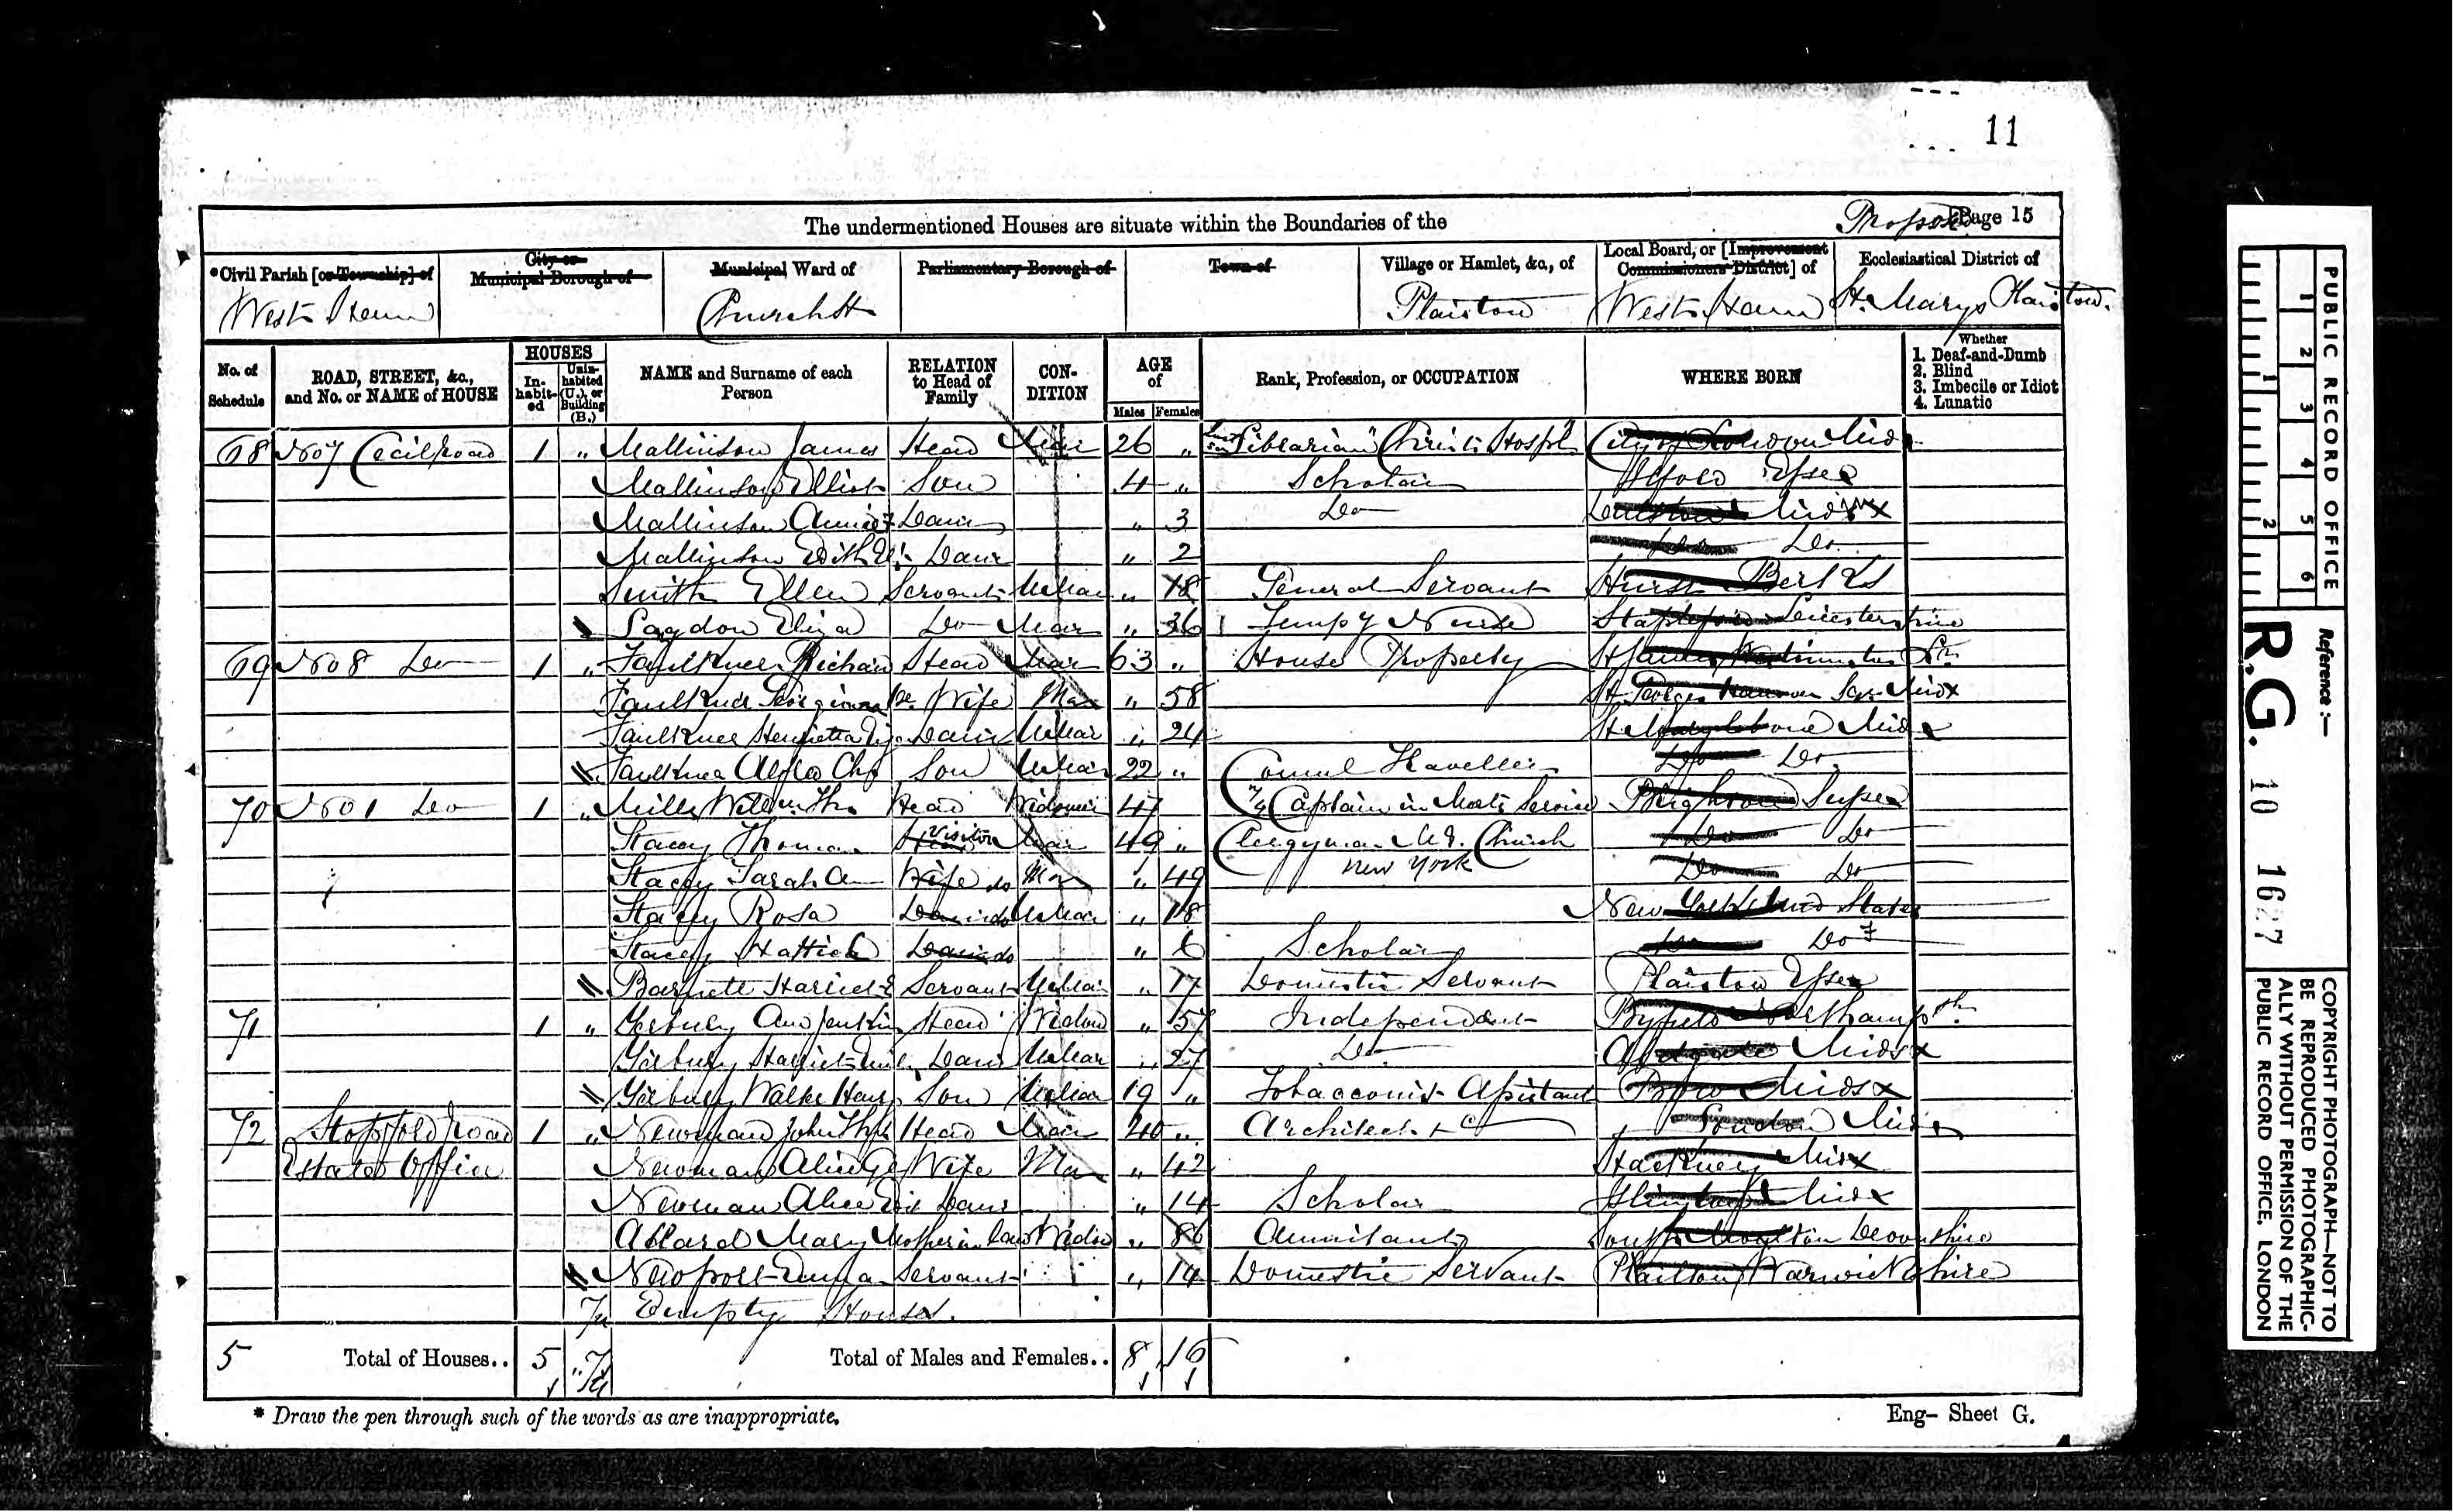 11
The undermentioned Houses are situate within the Boundaries of the
Page 15
*Civil Parish [or Township] of
City or Municipal Borough of
Municipal Ward of
Parliamentary Borough of
Town of
Village or Hamlet, &c., of
Local Board, or [Improvement Commissioners District] of
Ecclesiastical District of
West Ham
Church St
Plaistow
West Ham
St. Marys Plaistow.
No. of Schedule
ROAD, STREET, &c., and No. or NAME of HOUSE
HOUSES
In-habit-ed
Unin-habited (U.), or Building (B.)
NAME and Surname of each Person
RELATION to Head of Family
CON-DITION
AGE of
Males
Females
Rank, Profession, or OCCUPATION
WHERE BORN
Whether
1. Deaf-and-Dumb
2. Blind
3. Imbecile or Idiot
4. Lunatic
68 No 7 Cecil Road 1 " Mallinson James Head Mar 26 " Librarian Christs Hospl City of London Midx
Mallinson Elliot Son 4 " Scholar Ilford Essex
Mallinson Daur " 3 Do Midsx
Mallinson Edith Daur " 2 Do Do
Smith Ellen Servant UnMar " 18 General Servant Hurst Berks
Eliza Do Mar " 36 Tempy Nurse Leicestershire
69 No 8 Do 1 " Faulkner Richard Head Mar 63 " House Property St James Westminster
Faulkner Georgiana Wife Mar " 58 St Georges Hanover Sqr Midx
Faulkner Henrietta Daur UnMar " 24 St Marylebone Midx
Faulkner Alfred Chs Son UnMar 22 " Comml Traveller Do Do
70 No 1 Do 1 " Mills Willm Thos Head Widower 47 Captain in Service Brighton Sussex
Stacey Thomas Visitor Mar 49 " Clergyman Church Do Do
New York
Stacey Sarah An Wife do Mar " 49 Do Do
Stacey Rosa Daur do UnMar " 18 New York United States
Stacey Hattie Daur do " 6 Scholar Do Do
Barnett Harriet E Servant UnMar " 17 Domestic Servant Plaistow Essex
71 1 " Ann Jenkins Head Widow " 57 Independent Byfield Northampsh
Harriet Daur UnMar " 27 Do Aldgate Midsx
Walter Hen Son UnMar 19 " Tobacconist Assistant Bow Midsx
72 Stopford Road 1 " Newman John Thos Head Mar 40 " Architect &c London Midx
Estate Office Newman Wife Mar " 42 Hackney Midx
Newman Alice Daur " 14 Scholar Islington Midx
Mary Mother in law Widow " 86 Annuitant South Moulton Devonshire
Newport Emma Servant " 14 Domestic Servant Warwickshire
Empty House.
5 Total of Houses.. 5 Total of Males and Females.. 8 16
* Draw the pen through such of the words as are inappropriate.
Eng- Sheet G.
PUBLIC RECORD OFFICE
1 2 3 4 5 6
1 2
Reference:-
R.G. 10 1627
COPYRIGHT PHOTOGRAPH—NOT TO
BE REPRODUCED PHOTOGRAPHIC-
ALLY WITHOUT PERMISSION OF THE
PUBLIC RECORD OFFICE, LONDON